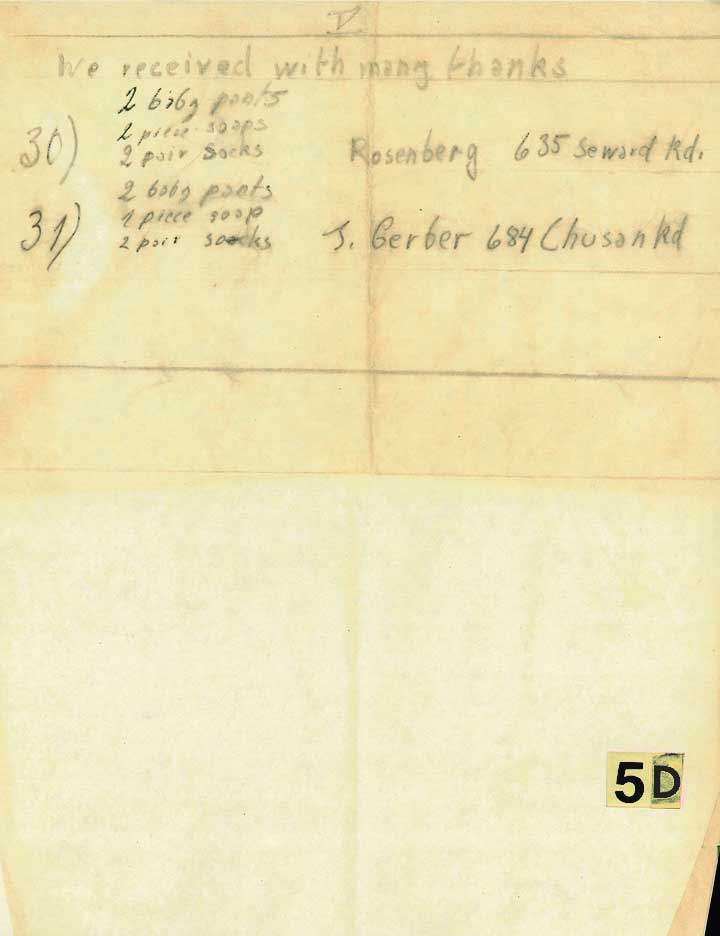 V
We received with many thanks
2 baby pants
2 piece soaps
30) 2 pair Socks Rosenberg 635 Seward Rd.
2 baby pants
1 piece soap
31) 2 pair socks J. Gerber 684 Chusan Rd
5D